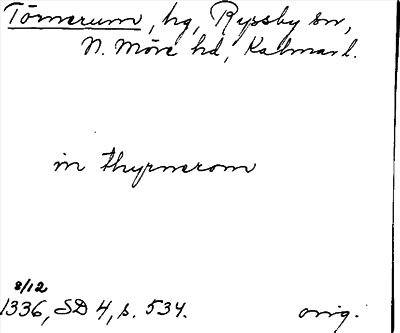 Tömserum, hg, Ryssby sn,
N. Möre hd, Kalmar l.
in thyrnerom
8/12
1336, SD 4, s. 534. orig.